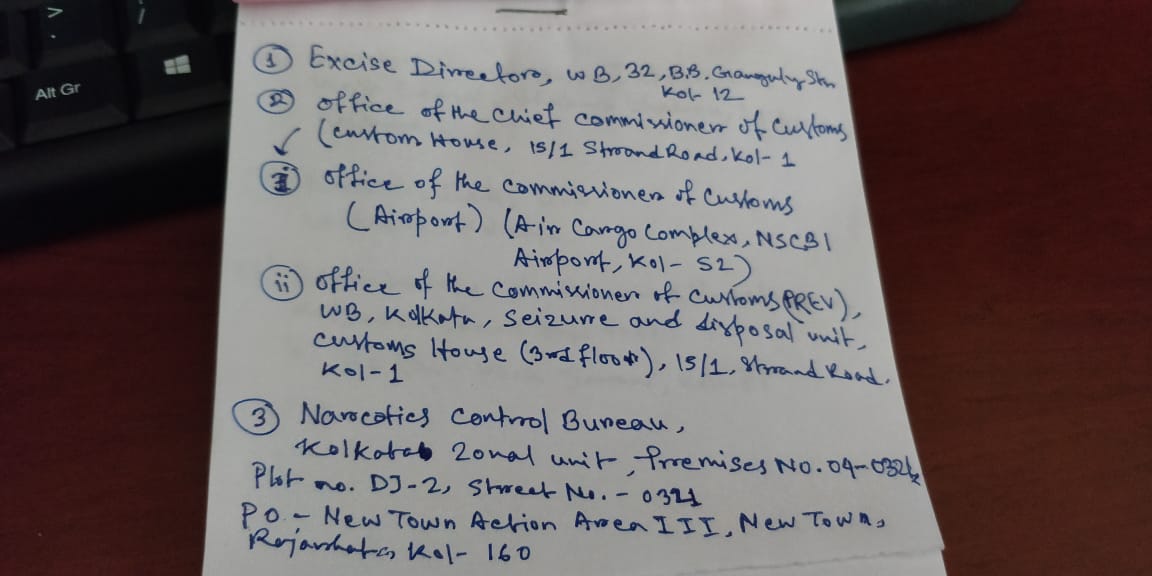 Alt Gr
① Excise Directors, WB, 32, B.B. Ganguly Str
Kol- 12
② office of the chief commissioner of Customs
(custom House, 15/1 Strand Road, Kol- 1
ⓘ office of the commissioner of Customs
(Airport) (Air Cargo Complex, NSCBI
Airport, Kol- 52)
ⓘⓘ office of the commissioner of customs (PREV),
WB, Kolkata, Seizure and disposal unit,
customs House (3rd floor), 15/1, Strand Road.
Kol-1
③ Narcotics Control Bureau,
Kolkata Zonal unit, Premises No. 04-032
Plot no. DJ-2, Street No. - 0321
PO - New Town Action Area III, New Town,
Rajarhat, Kol- 160